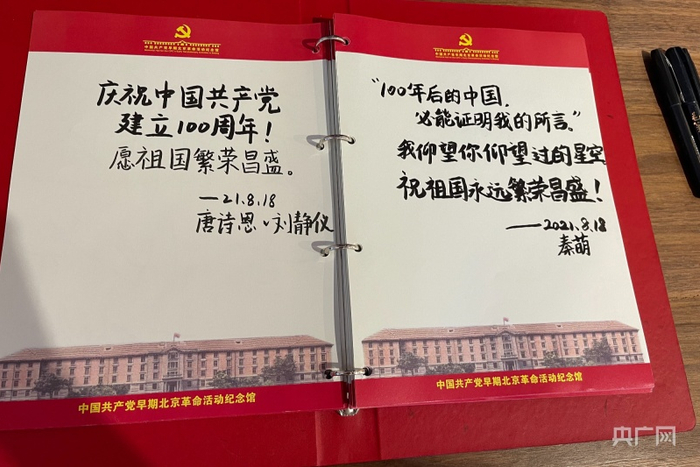 中国共产党早期北京革命活动纪念馆
庆祝中国共产党
建立100周年！
愿祖国繁荣昌盛。
——21.8.18
唐诗恩、刘静仪
中国共产党早期北京革命活动纪念馆
中国共产党早期北京革命活动纪念馆
“100年后的中国，
必能证明我的所言。”
我仰望你仰望过的星空
祝祖国永远繁荣昌盛！
——2021.8.18
秦萌
中国共产党早期北京革命活动纪念馆
央广网